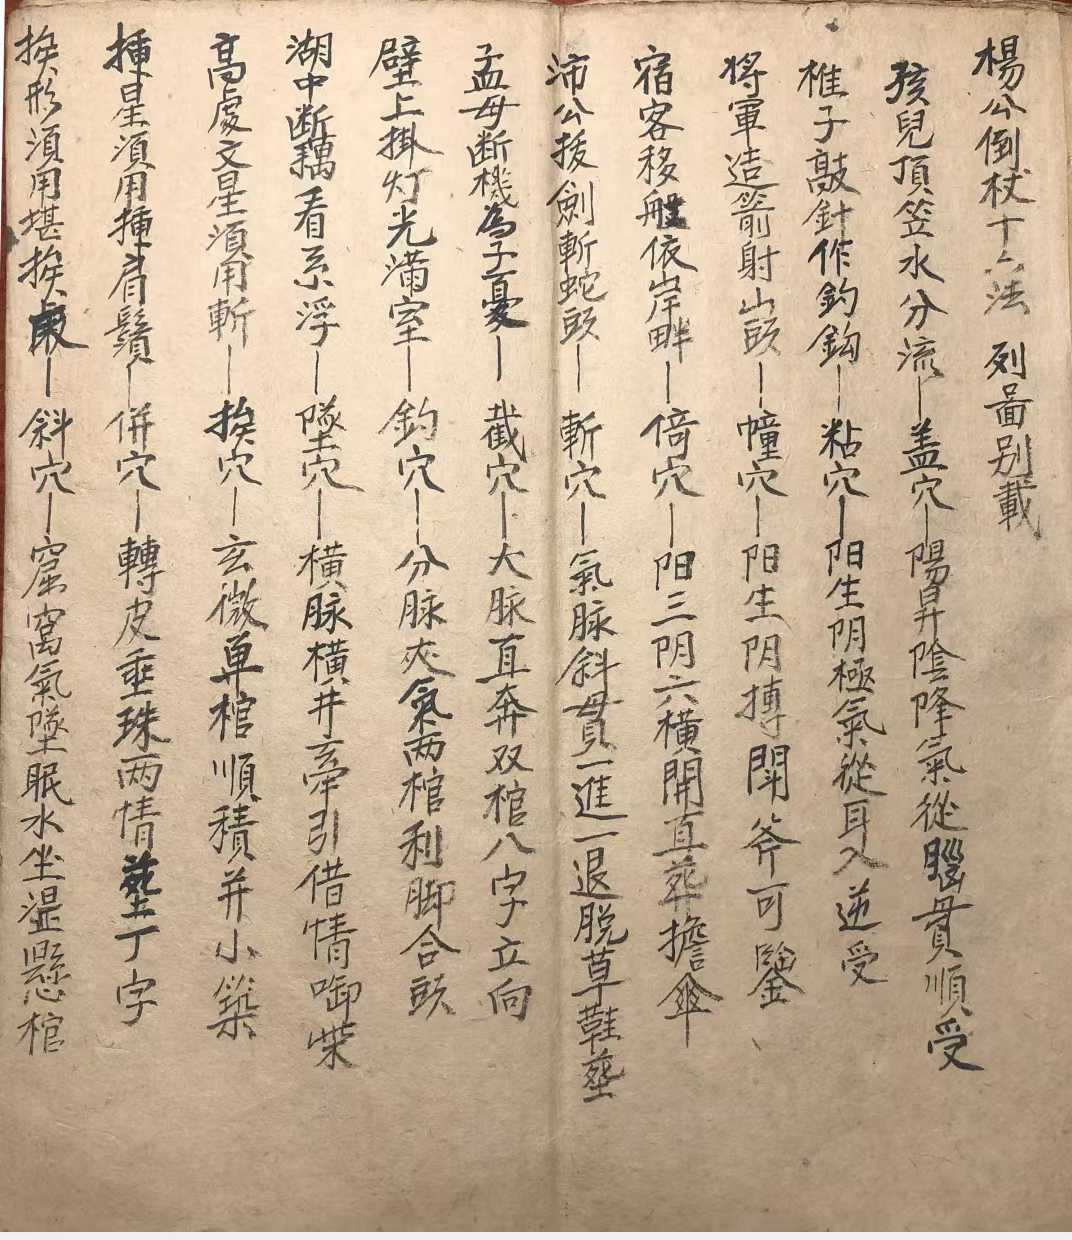 楊公倒杖十六法 列畐别載
孩兒頂笠水分流—盖穴—陽昇陰降氣從腦貫順受
椎子敲針作釣鈎—粘穴—阳生阴極氣從耳入逆受
将軍造箭射山頭—幢穴—阳生阴搏開斧可鑿
宿客移船依岸畔—倚穴—阳三阴六橫開直葬擔傘
沛公拔劍斬蛇頭—斬穴—氣脉斜貫一進一退脱草鞋塟
孟母断機為子憂—截穴—大脉直奔双棺八字立向
壁上掛灯光滿室—釣穴—分脉夾氣两棺利脚合頭
湖中断藕看糸浮—墜穴—橫脉橫井牽引借情啣柴
高處文星須用斬—挨穴—玄微单棺順積并小築
揷星須用揷肩鬚—併穴—轉皮垂珠两情塟丁字
挨形須用堪挨—斜穴—窟窩氣墜眠水坐湿懸棺